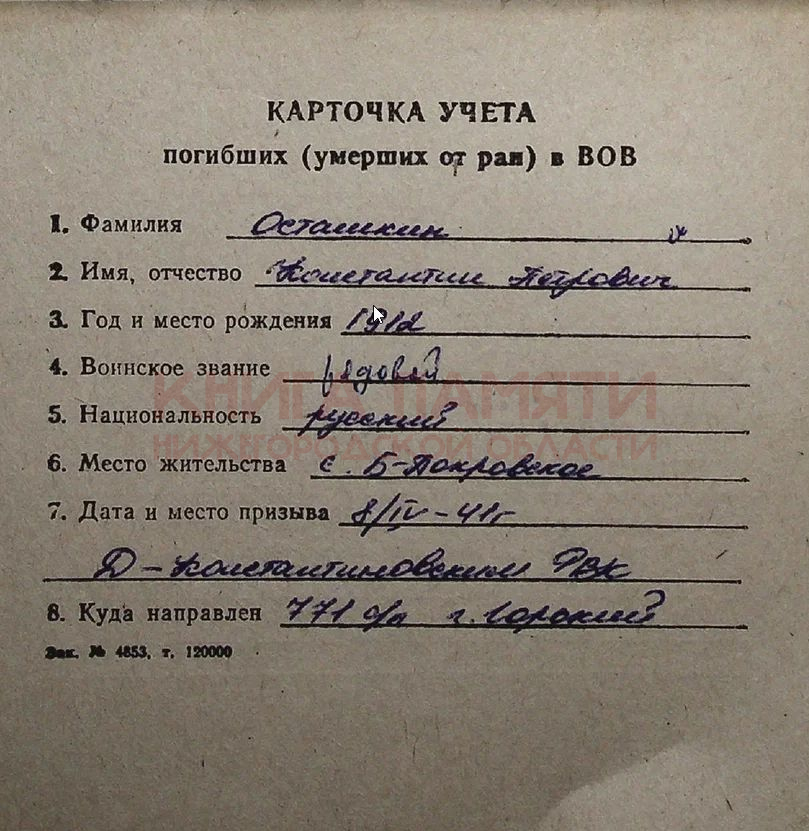 КАРТОЧКА УЧЕТА
погибших (умерших от ран) в ВОВ
1. Фамилия Осташкин
2. Имя, отчество Константин Петрович
3. Год и место рождения 1912
4. Воинское звание рядовой
КНИГА ПАМЯТИ
5. Национальность русский
НИЖЕГОРОДСКОЙ ОБЛАСТИ
6. Место жительства с. Б-Покровское
7. Дата и место призыва 8/IV-41г
Д-Константиновским РВК
8. Куда направлен 771 г. Горький
Зак. № 4853, т. 120000